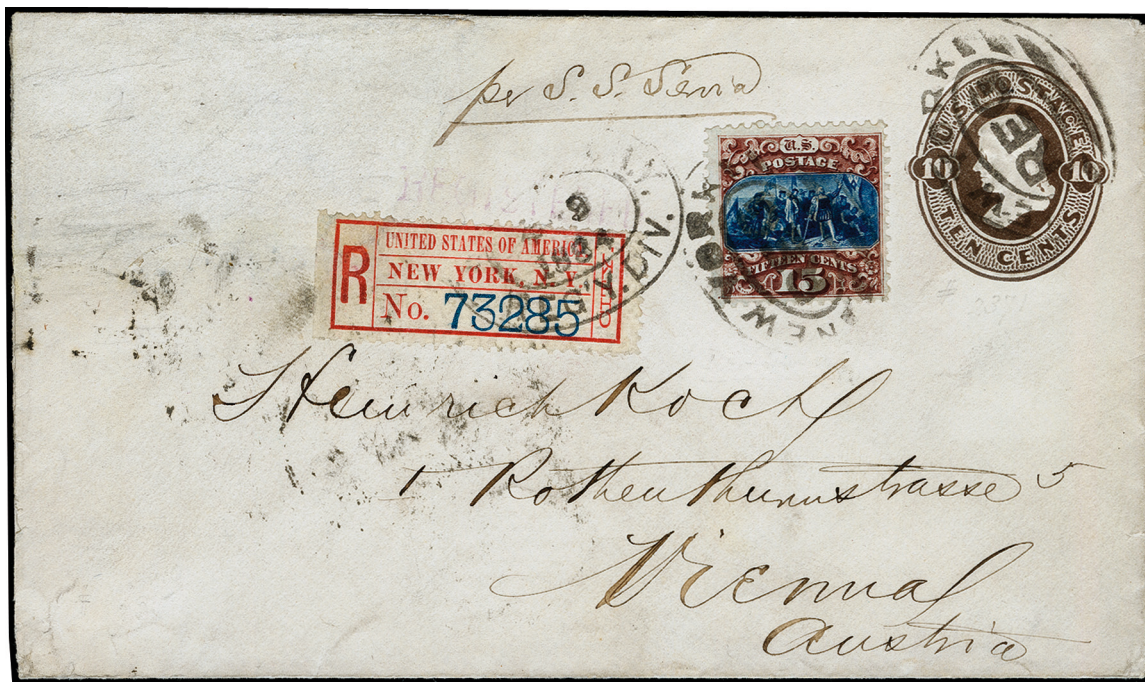 per S. S. Servia
U.S. POSTAGE
10 10
TEN CENTS
U.S.
POSTAGE
FIFTEEN CENTS
15
NEW YORK
Y. DIV.
R
UNITED STATES OF AMERICA
NEW YORK N.Y.
No. 73285
Heinrich Koch
1 Rothenthurmstrasse 5
Vienna
Austria